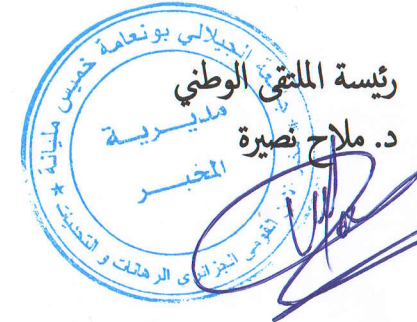 رئيسة الملتقى الوطني
د. ملاح نصيرة
جامعة الجيلالي بونعامة خميس مليانة
مديرية
المخبر
القومي الجزائري الرهانات و التحديات